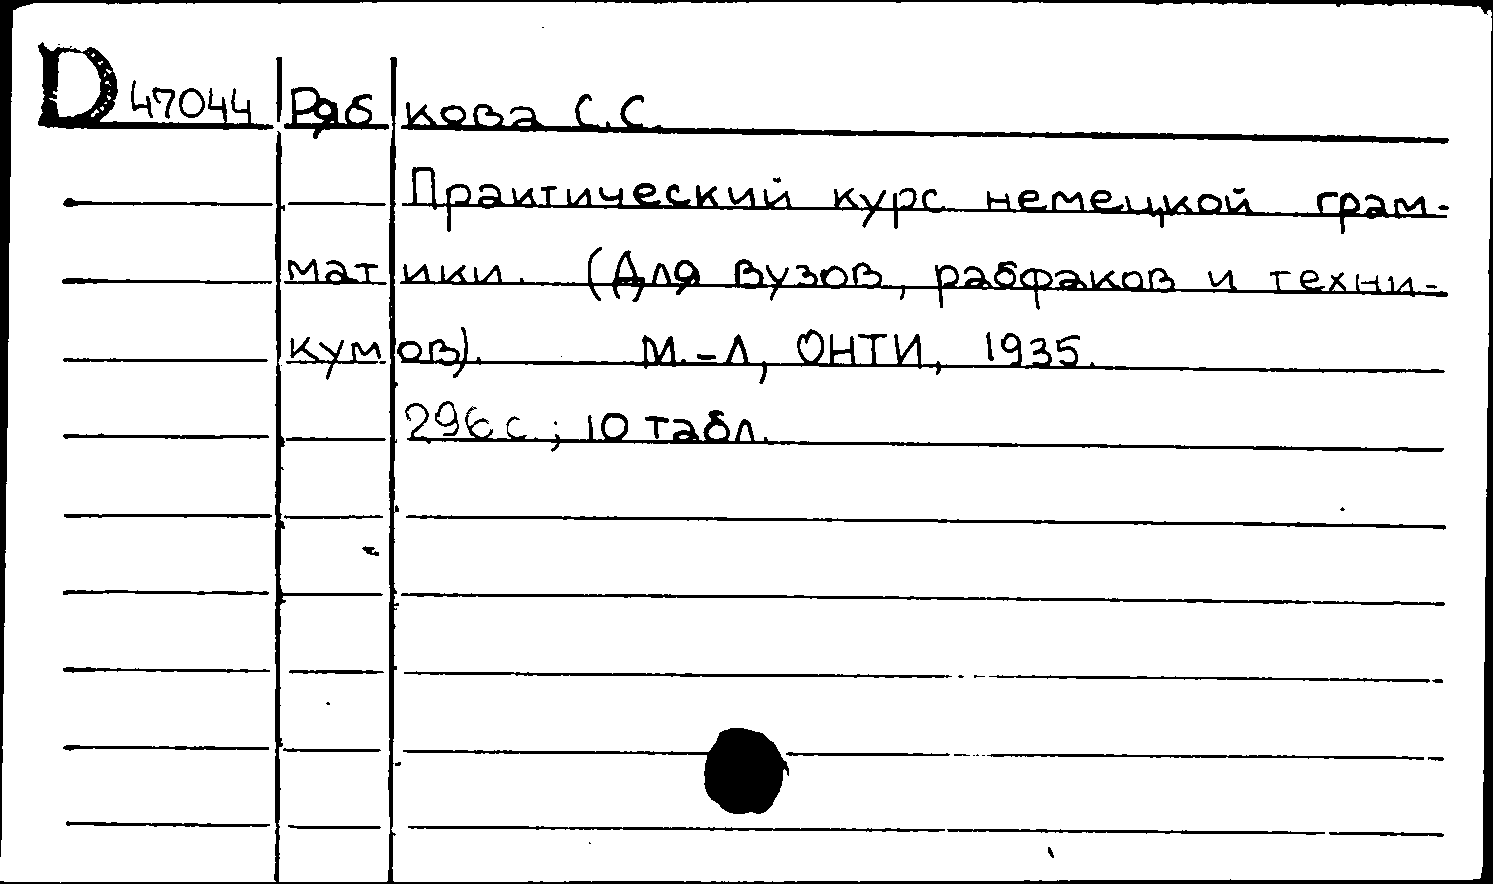 D 47044 Рябкова С.С.
Практический курс немецкой грам-
матики. (Для вузов, рабфаков и техни-
кумов). М.-Л, ОНТИ, 1935.
296 с.; 10 табл.